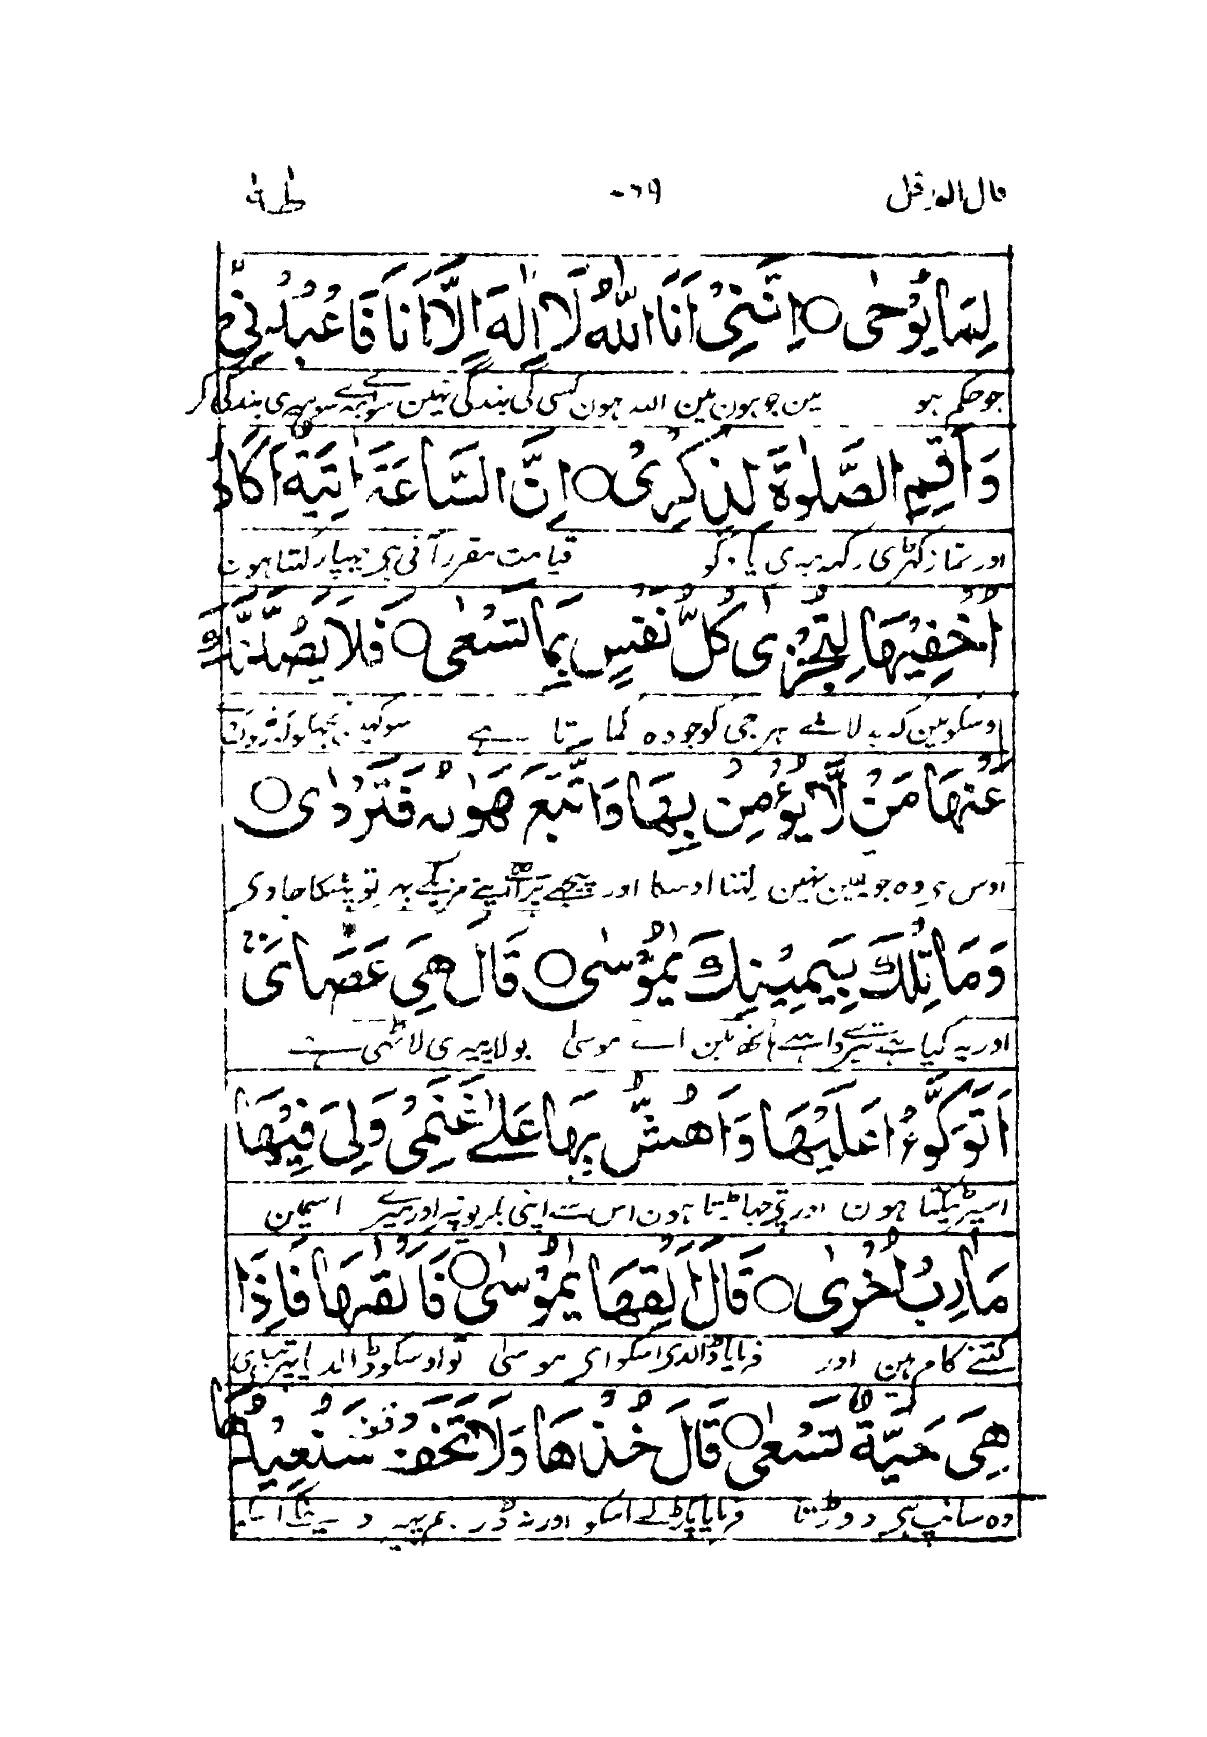 قال الم قل ٦٩٠ طٰهٰ
لِمَا يُوْحٰى ○ اِنَّنِىْۤ اَنَا اللّٰهُ لَاۤ اِلٰهَ اِلَّاۤ اَنَا فَاعْبُدْنِىْ
جو حکم ہو مین جو ہون مین اللہ ہون کسی کی بندگی نہین سوا میرے سو میری بندگی کر
وَاَقِمِ الصَّلٰوةَ لِذِكْرِىْ ○ اِنَّ السَّاعَةَ اٰتِيَةٌ اَكَادُ
اور نماز کہڑی رکہہ میری یاد کو قیامت مقرر آنی ہی چہپا رکہتا ہون
اُخْفِيْهَا لِتُجْزٰى كُلُّ نَفْسٍۢ بِمَا تَسْعٰى ○ فَلَا يَصُدَّنَّكَ
اوسکو مین کہ بدلا ملے ہر جی کو جو وہ کماتا ہے سو کہین
عَنْهَا مَنْ لَّا يُؤْمِنُ بِهَا وَاتَّبَعَ هَوٰىهُ فَتَرْدٰى ○
اوس سے وہ جو یقین نہین رکہتا اوسکا اور پیچہے پڑا اپنے مزیکے پہر تو پٹکا جاوی
وَمَا تِلْكَ بِيَمِيْنِكَ يٰمُوْسٰى ○ قَالَ هِىَ عَصَاىَۚ
اور یہ کیا ہے تیرے داہنے ہاتھ مین اے موسیٰ بولا یہ میری لاٹھی ہے
اَتَوَكَّؤُا عَلَيْهَا وَاَهُشُّ بِهَا عَلٰى غَنَمِىْ وَلِىَ فِيْهَا
اسپر ٹیکتا ہون اور پتے جہاڑتا ہون اس سے اپنی بکریونپر اور میرے اسمین
مَاٰرِبُ اُخْرٰى ○ قَالَ اَلْقِهَا يٰمُوْسٰى ○ فَاَلْقٰىهَا فَاِذَا
کتنے کام ہین اور فرمایا ڈالدی اسکو ای موسیٰ تو اوسکو ڈالدیا
هِىَ حَيَّةٌ تَسْعٰى ○ قَالَ خُذْهَا وَلَا تَخَفْ وقفة سَنُعِيْدُهَا
وہ سانپ ہی دوڑتا فرمایا پکڑلے اسکو اور نہ ڈر ہم پہیر دینگے اسکو